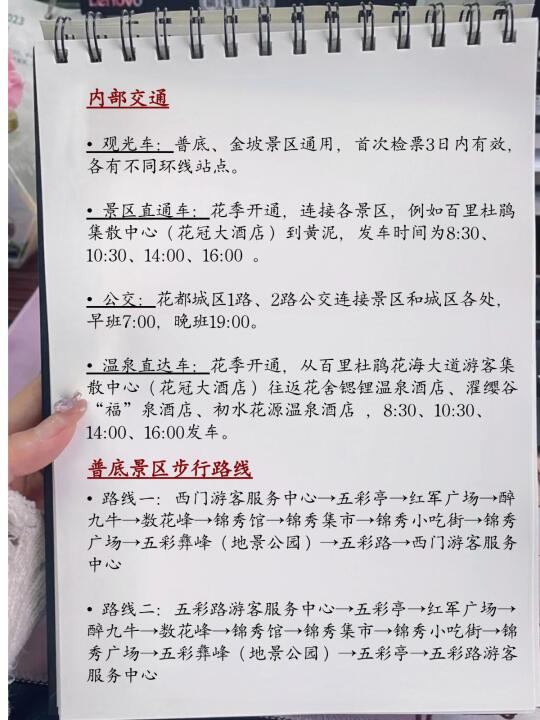 lenovo
023
内部交通
• 观光车：普底、金坡景区通用，首次检票3日内有效，
各有不同环线站点。
• 景区直通车：花季开通，连接各景区，例如百里杜鹃
集散中心（花冠大酒店）到黄泥，发车时间为8:30、
10:30、14:00、16:00 。
• 公交：花都城区1路、2路公交连接景区和城区各处，
早班7:00，晚班19:00。
• 温泉直达车：花季开通，从百里杜鹃花海大道游客集
散中心（花冠大酒店）往返花舍锶锂温泉酒店、濯缨谷
“福”泉酒店、初水花源温泉酒店 ，8:30、10:30、
14:00、16:00发车。
普底景区步行路线
• 路线一：西门游客服务中心→五彩亭→红军广场→醉
九牛→数花峰→锦秀馆→锦秀集市→锦秀小吃街→锦秀
广场→五彩彝峰（地景公园）→五彩路→西门游客服务
中心
• 路线二：五彩路游客服务中心→五彩亭→红军广场→
醉九牛→数花峰→锦秀馆→锦秀集市→锦秀小吃街→锦
秀广场→五彩彝峰（地景公园）→五彩亭→五彩路游客
服务中心